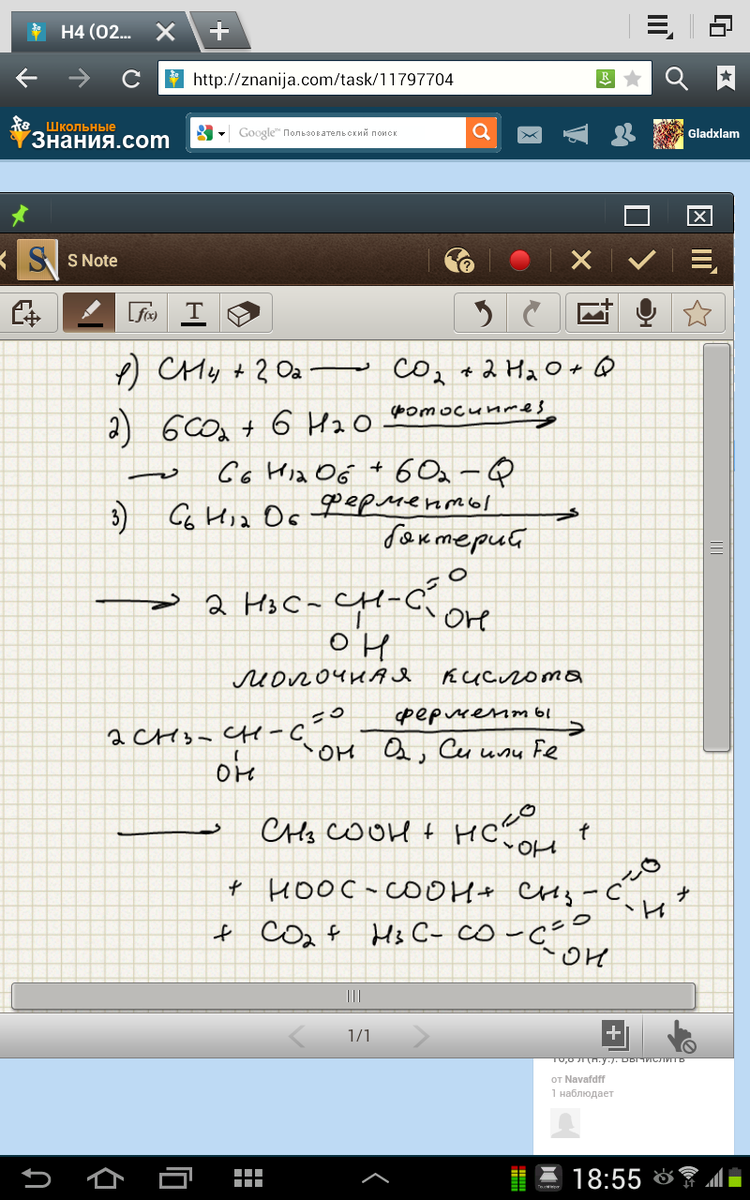 H4 (O2...
http://znanija.com/task/11797704
Школьные
Знания.com
Google™ Пользовательский поиск
Gladxlam
S Note
f(x)
T
1) CH4 + 2O2 ⟶ CO2 + 2H2O + Q
2) 6CO2 + 6H2O фотосинтез ⟶
⟶ C6H12O6 + 6O2 − Q
3) C6H12O6 ферменты ⟶
бактерий
⟶ 2 H3C − CH − C = O
OH
OH
молочная кислота
2CH3 − CH − C = O ферменты ⟶
OH O2, Cu или Fe
OH
⟶ CH3COOH + HC = O +
OH
+ HOOC−COOH + CH3 − C = O +
H
+ CO2 + H3C − CO − C = O
OH
1/1
10,8 л (н.у.). Вычислить
от Navafdff
1 наблюдает
18:55